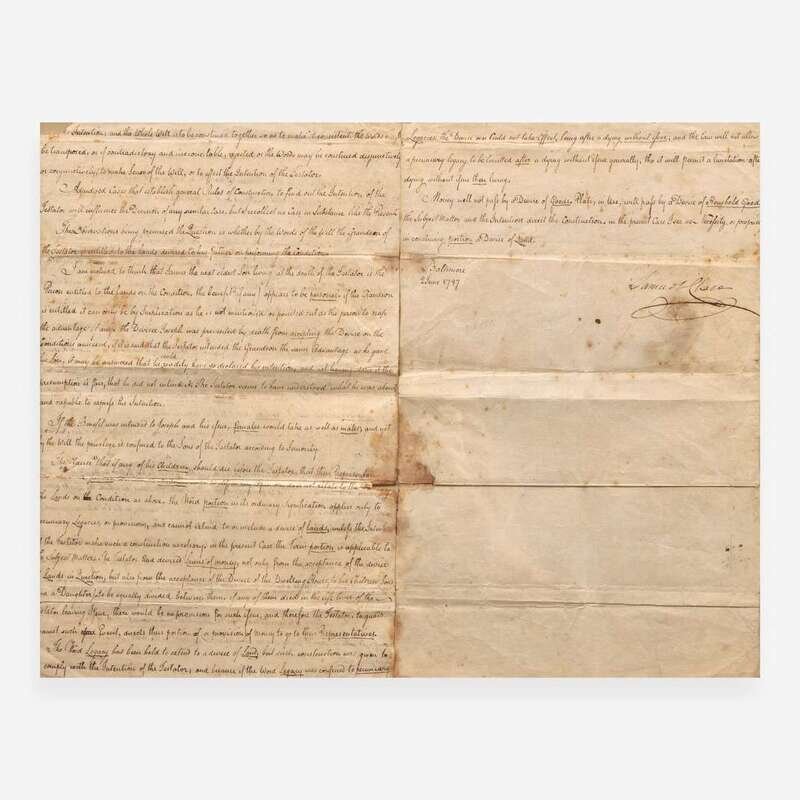 Intention; and the whole Will is to be construed together so as to make it consistent. the Words may
be transposed, or if contradictory and irreconcileable, rejected or the Words may be construed disjunctively
or conjunctively, to make Sense of the Will, or to effect the Intention of the Testator.
Adjudged Cases that establish general Rules of Construction to find out the Intention of the
Testator will influence the Decision of any similar Case, but I recollect no Case in Substance like the Present
These Observations being premised the Question is whether by the Words of the Will the Grandson of
the Testator is entitled to the Lands devised to his father on performing the Condition.
I am inclined to think that James the next eldest Son living at the death of the Testator is the
Person entitled to the Lands on the Condition. the benefit (if any) appears to be personal; if the Grandson
is entitled it can only be by Implication as he is not mentioned or pointed out as the person to reap
the advantage; if Devisee Joseph was prevented by death from accepting the Devise on the
Conditions annexed, if it is said that the Testator intended the Grandson the same Advantage as he gave
his Son, it may be answered that he could readily have so declared his intention, and not having done it the
presumption is fair, that he did not intend it. The Testator seems to have understood what he was about
and capable to express his Intention.
If the Benefit was intended to Joseph and his issue, females would take as well as males, and yet
by the Will the privilege is confined to the Sons of the Testator according to Seniority.
The Clause "that if any of his Children, should die before the Testator, that their Representa
the Lands on the Condition as above. the Word portion in its ordinary Signification applies only to
pecuniary Legacies, or provision, and cannot extend to or include a devise of lands, unless the Intention
of the Testator make such a construction necessary. in the present Case the Term portion is applicable to
the subject Matter. The Testator had devised Sums of money, not only from the acceptance of the devise
Lands in Question, but also from the acceptance of the Devise of the Dwelling House, to his children Sons
and a Daughter, to be equally divided between them; if any of them died in the life time of the
Testator leaving issue, there would be no provision for such issue, and therefore the Testator, to guard
against such Event, directs their portion of a provision of money to go to their Representatives.
The Word Legacy has been held to extend to a devise of Land; but such construction was given to
comply with the Intention of the Testator; and because if the Word Legacy was confined to pecuniary
Legacies, the Devise over could not take effect, being after a dying without issue; and the law will not allow
a pecuniary legacy to be limited after a dying without issue generally, tho it will permit a limitation after
dying without issue then living.
Money will not pass by a Devise of Goods; Plate, in use, will pass by a Devise of Household Goods
the Subject Matter and the Intention direct the Construction. in the present Case I see no Necessity, or propriety
in construing portion a Devise of Land.
Baltimore
2 June 1797
Samuel Chase